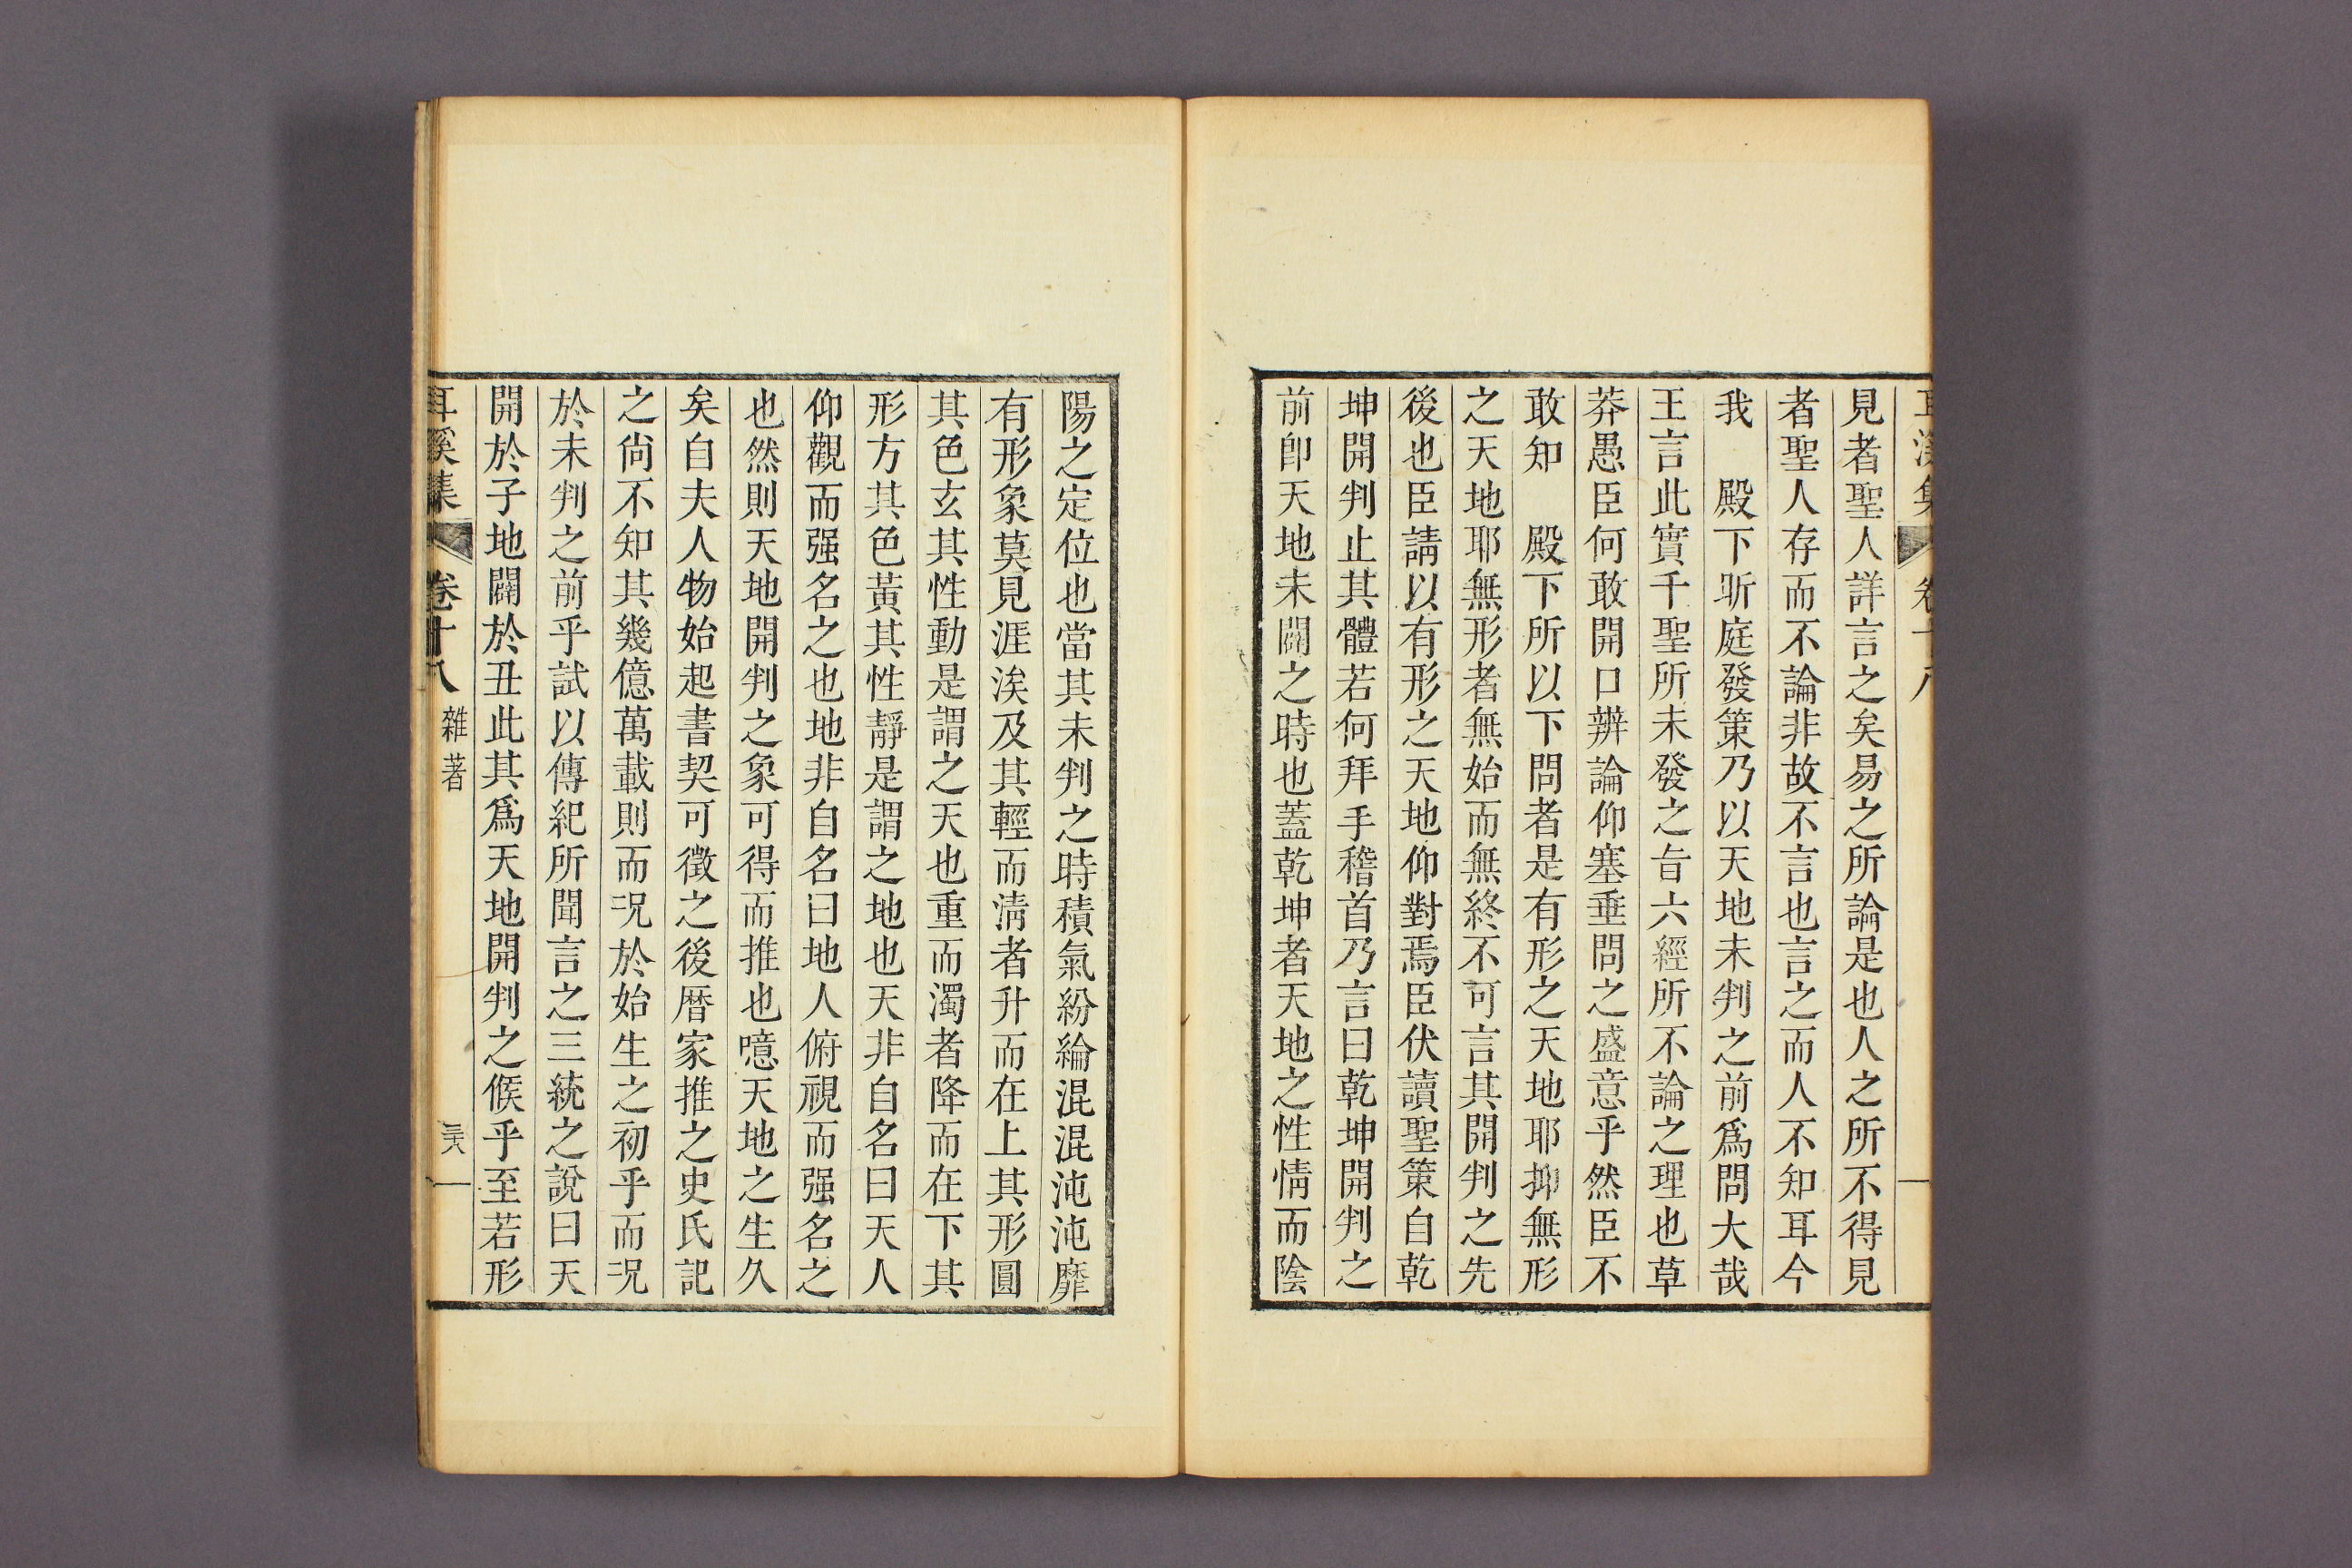 見者聖人詳言之矣易之所論是也人之所不得見
者聖人存而不論非故不言也言之而人不知耳今
我　殿下昕庭發策乃以天地未判之前爲問大哉
王言此實千聖所未發之旨六經所不論之理也草
莽愚臣何敢開口辨論仰塞垂問之盛意乎然臣不
敢知　殿下所以下問者是有形之天地耶抑無形
之天地耶無形者無始而無終不可言其開判之先
後也臣請以有形之天地仰對焉臣伏讀聖策自乾
坤開判止其體若何拜手稽首乃言曰乾坤開判之
前卽天地未闢之時也蓋乾坤者天地之性情而陰
陽之定位也當其未判之時積氣紛綸混混沌沌靡
有形象莫見涯涘及其輕而淸者升而在上其形圓
其色玄其性動是謂之天也重而濁者降而在下其
形方其色黃其性靜是謂之地也天非自名曰天人
仰觀而强名之也地非自名曰地人俯視而强名之
也然則天地開判之象可得而推也噫天地之生久
矣自夫人物始起書契可徵之後曆家推之史氏記
之尙不知其幾億萬載則而况於始生之初乎而况
於未判之前乎試以傳紀所聞言之三統之說曰天
開於子地闢於丑此其爲天地開判之候乎至若形
耳溪集　卷十八　雜著